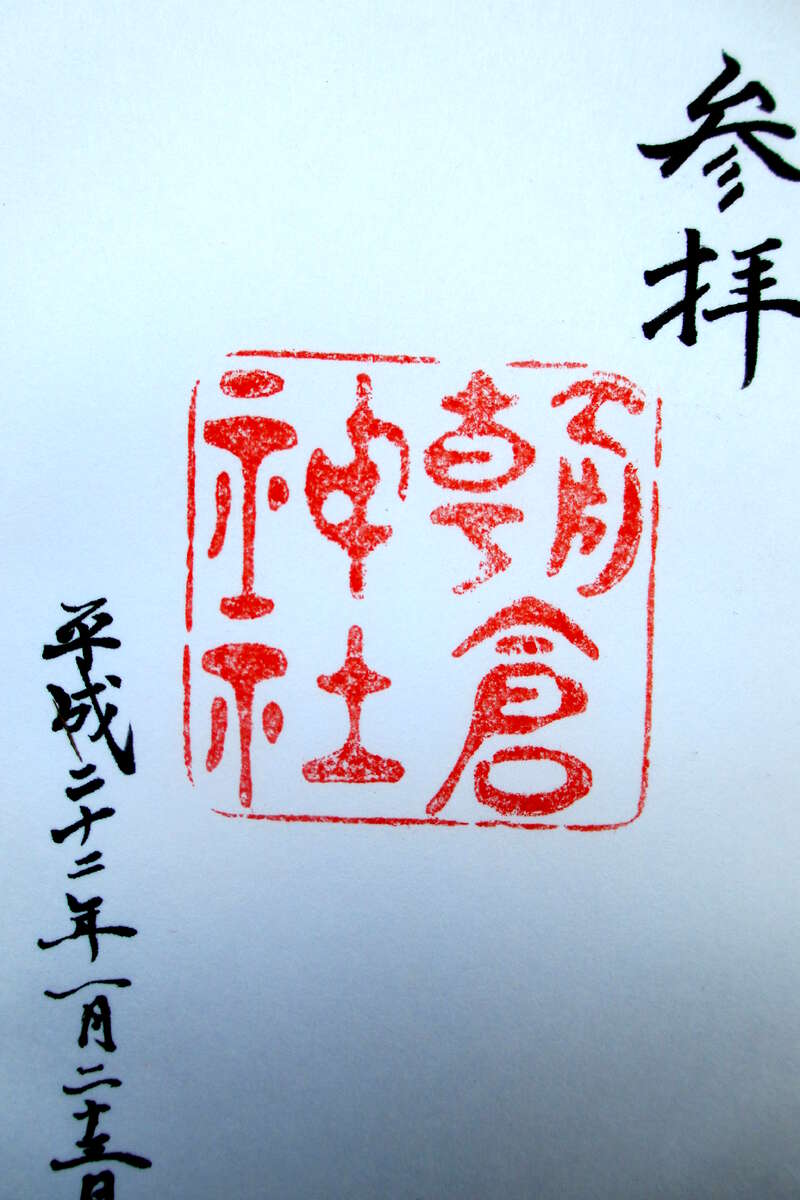 参拝
朝倉
神社
平成二十二年一月二十三日